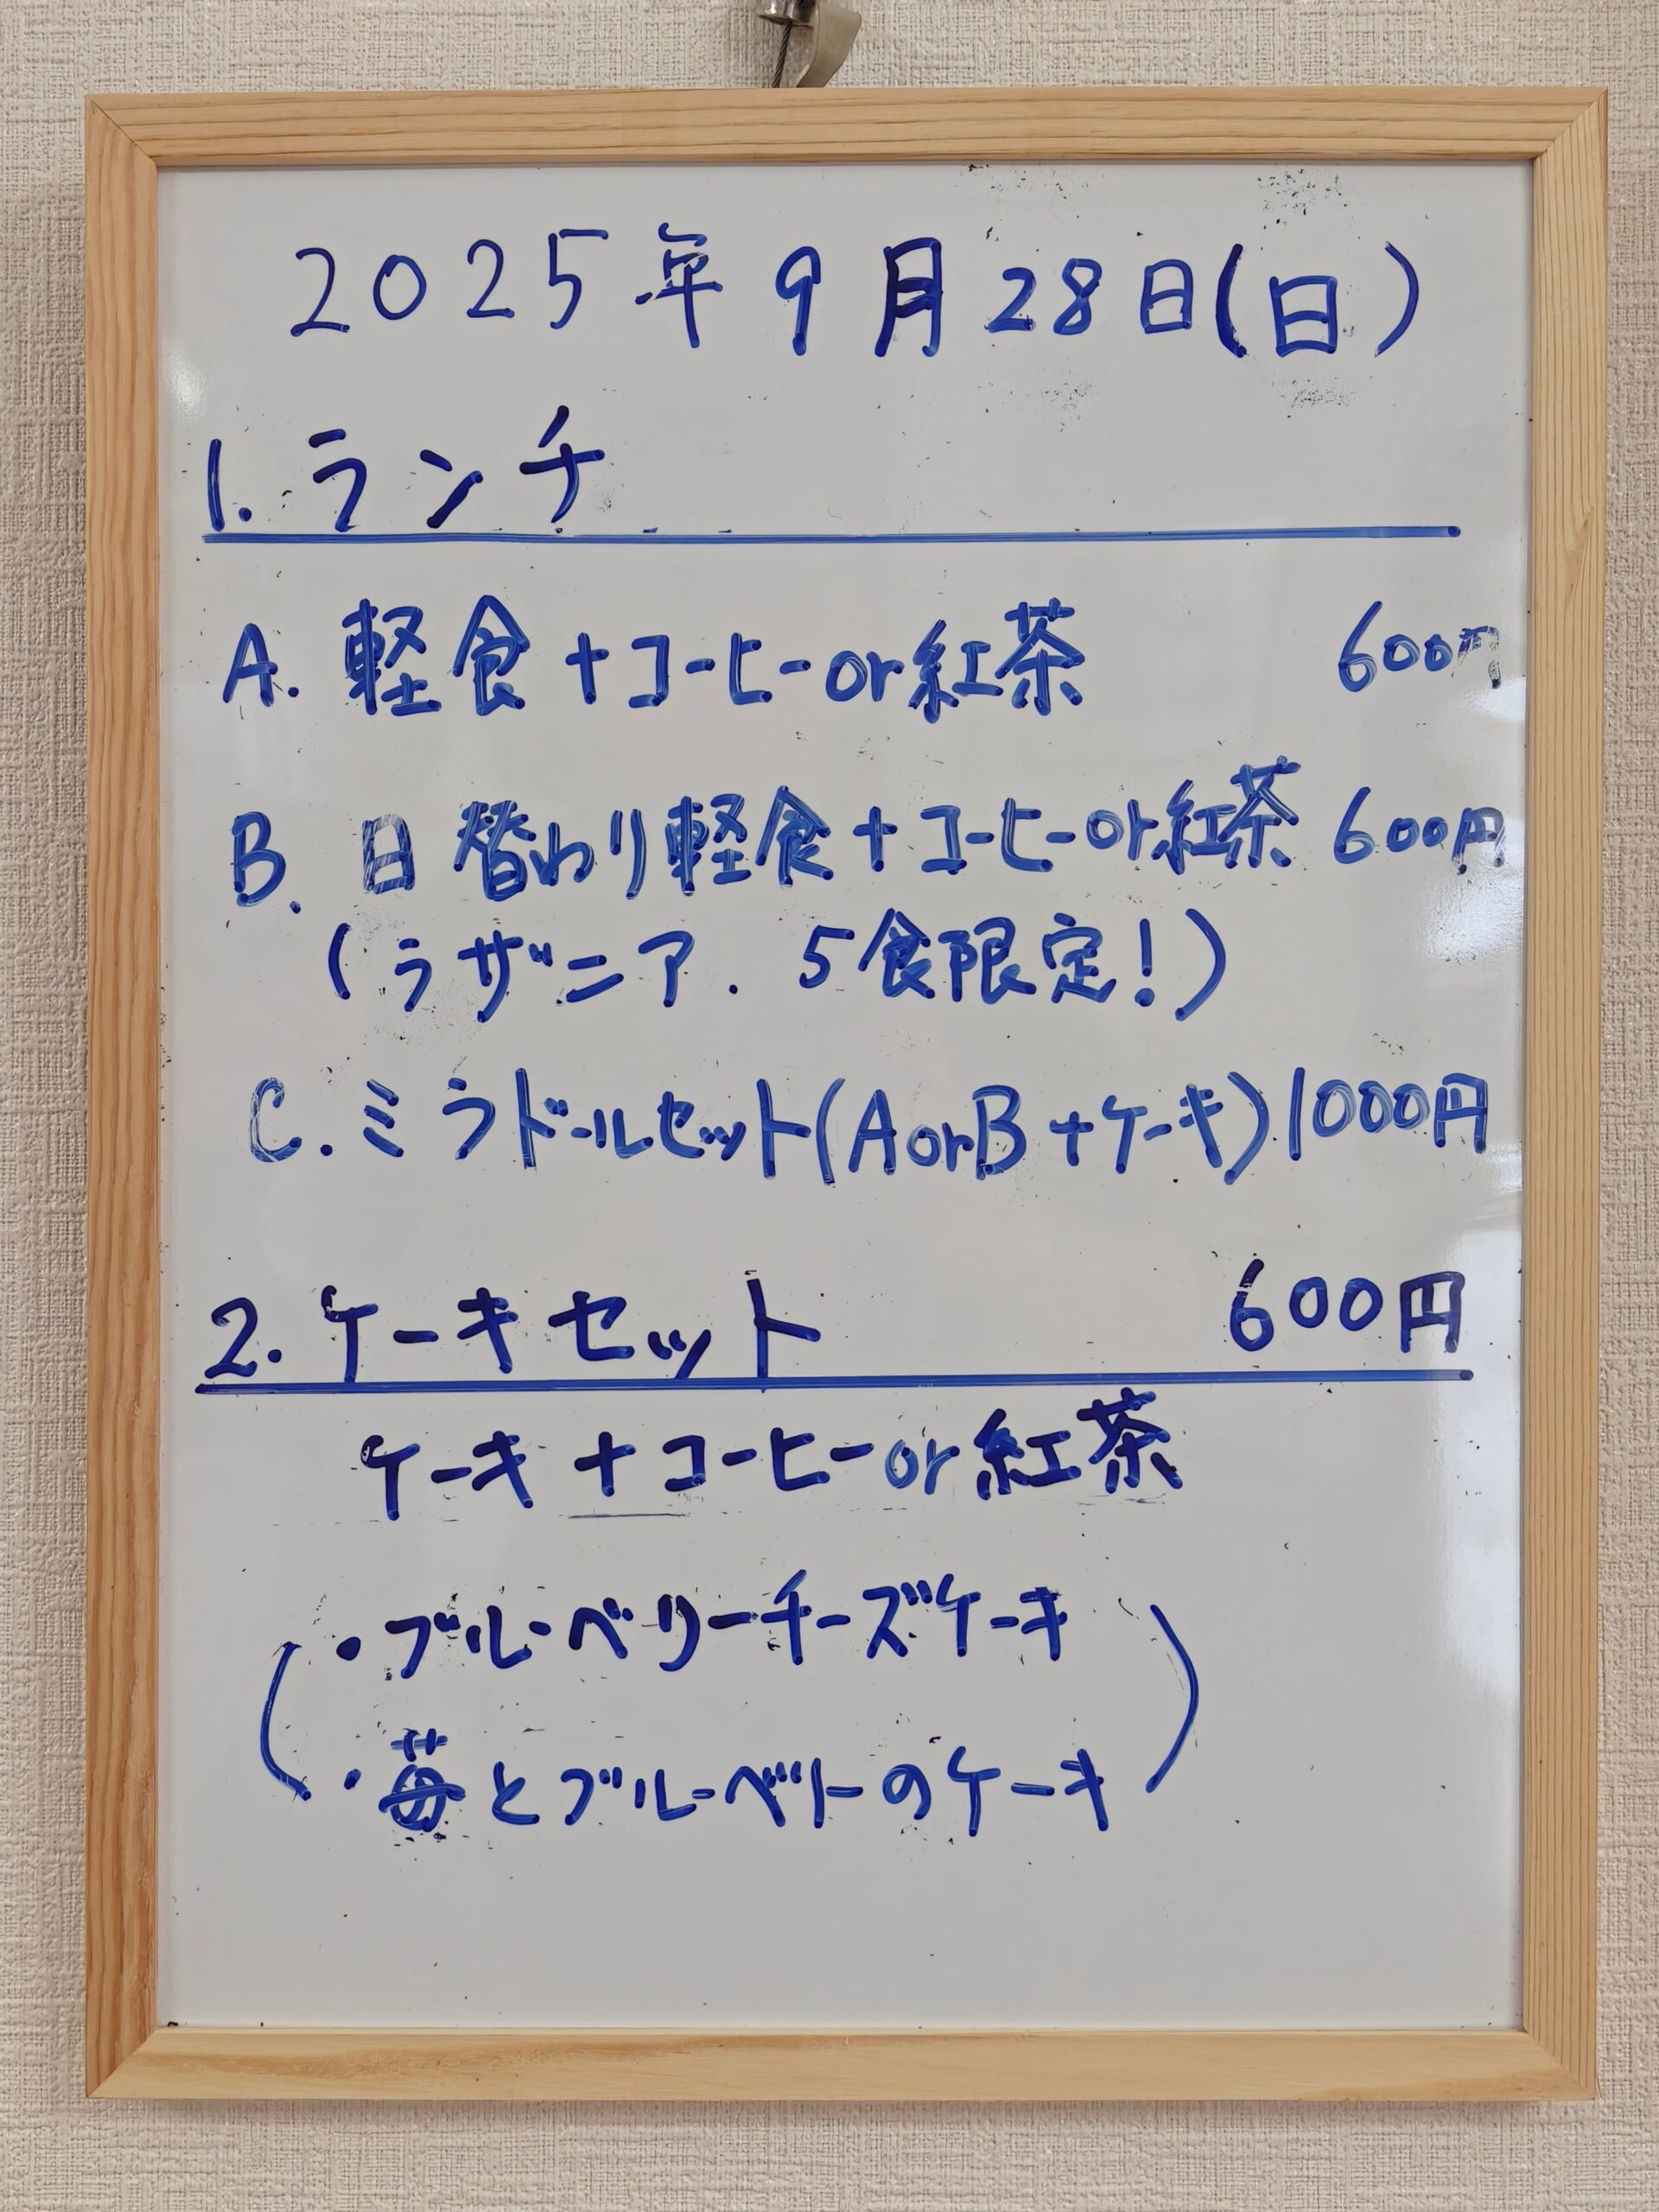 2025年9月28日(日)
1. ランチ
A. 軽食+コーヒーor紅茶 600円
B. 日替わり軽食+コーヒーor紅茶 600円
(ラザニア. 5食限定!)
C. ミラドールセット(AorB+ケーキ) 1000円
2. ケーキセット 600円
ケーキ+コーヒーor紅茶
(・ブルーベリーチーズケーキ
・苺とブルーベリーのケーキ)